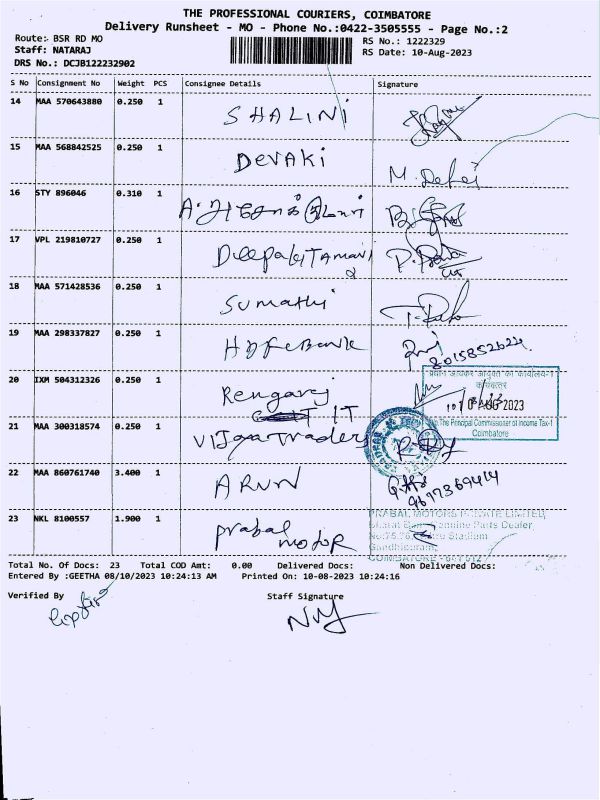 THE PROFESSIONAL COURIERS, COIMBATORE
Delivery Runsheet - MO - Phone No.:0422-3505555 - Page No.:2
Route:- BSR RD MO
RS No.: 1222329
Staff: NATARAJ
RS Date: 10-Aug-2023
DRS No.: DCJB122232902
S No Consignment No Weight PCS Consignee Details Signature
14 MAA 570643880 0.250 1 SHALINI
15 MAA 568842525 0.250 1 DEVAKI
16 STY 896046 0.310 1
17 VPL 219810727 0.250 1
18 MAA 571428536 0.250 1 Sumathi
19 MAA 298337827 0.250 1 HDFC Bank
8015852622
20 IXM 504312326 0.250 1 Rengaraj
IT
प्रधान आयकर आयुक्त का कार्यालय-1
10 AUG 2023
The Principal Commissioner of Income Tax-1
Coimbatore
21 MAA 300318574 0.250 1 Vijaya Traders
22 MAA 860761740 3.400 1 ARUN
9677369414
23 NKL 8100557 1.900 1 Prabal
motor
PRABAL MOTORS PRIVATE LIMITED
Bharat Benz Genuine Parts Dealer,
Stadium
Gandhipuram,
COIMBATORE - 641 012
Total No. Of Docs: 23 Total COD Amt: 0.00 Delivered Docs: Non Delivered Docs:
Entered By :GEETHA 08/10/2023 10:24:13 AM Printed On: 10-08-2023 10:24:16
Verified By Staff Signature